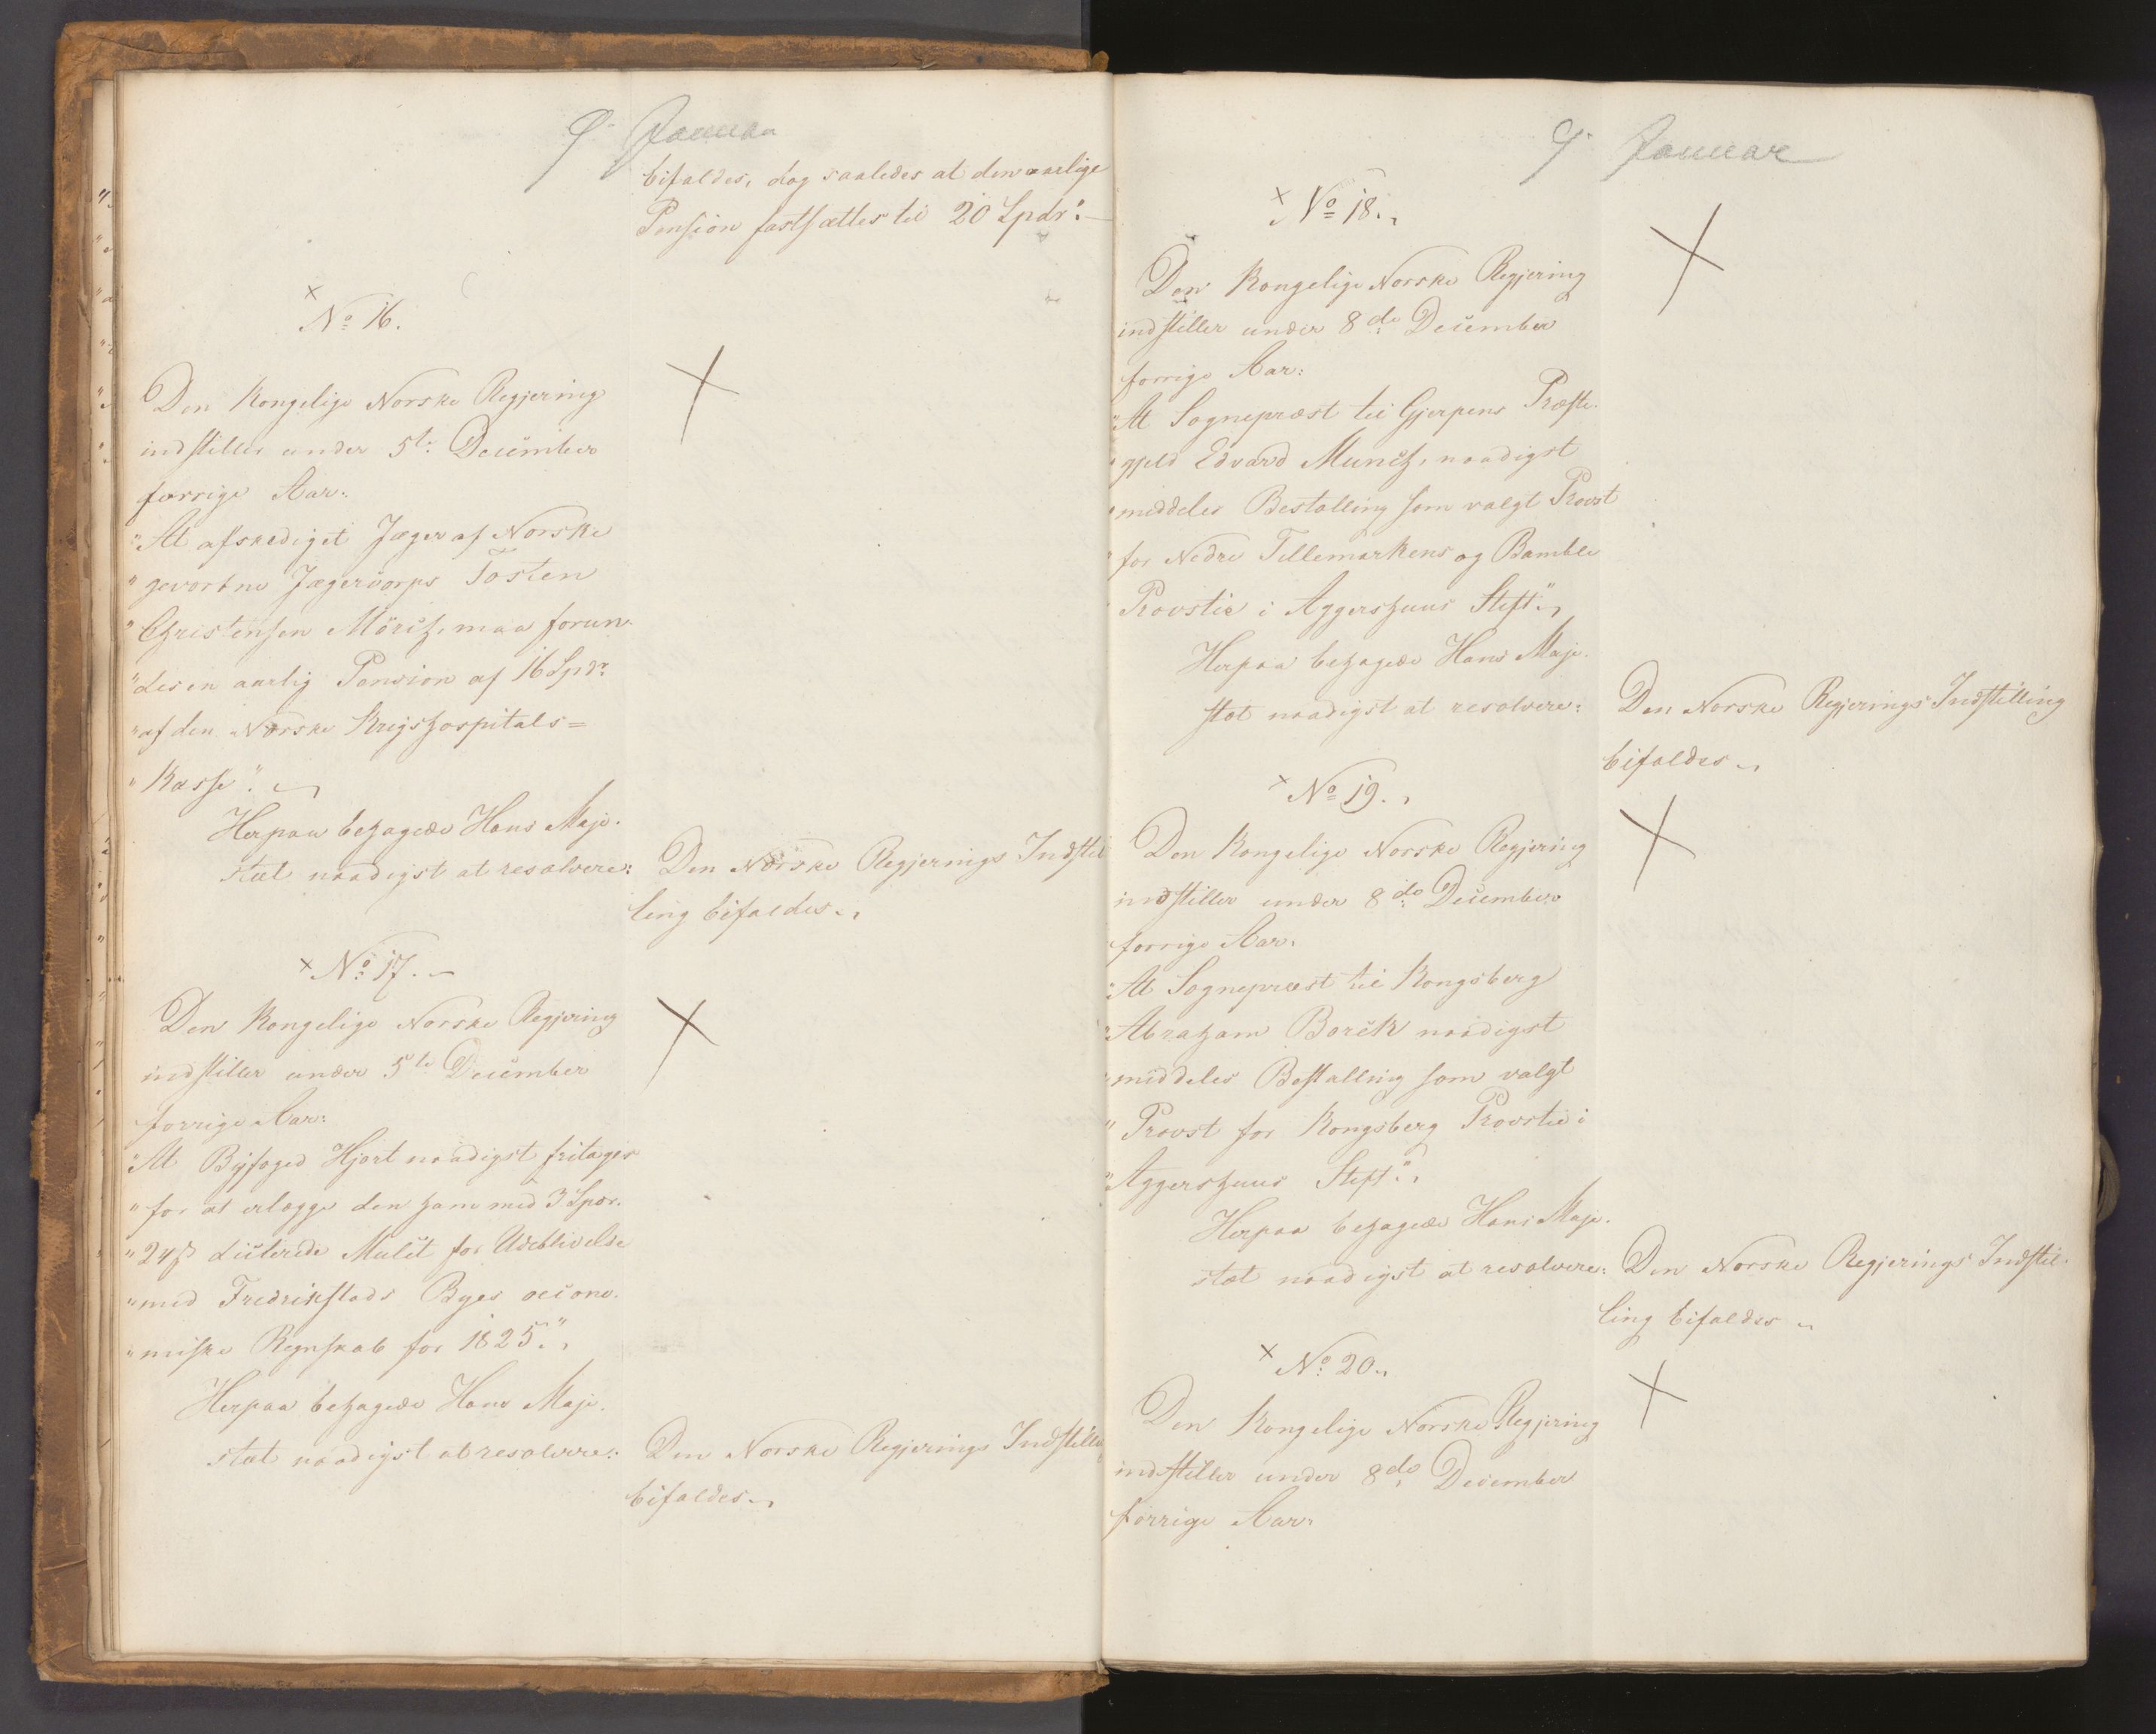 9. Januar
bifaldes, dog saaledes at den aarlige
Pension fastsættes til 20 Spdr:
No 16.
Den Kongelige Norske Regjering
indstiller under 5te December
forrige Aar:
"At afskediget Jæger af Norske
"gevorbne Jægercorps Tosten
"Christensen Mörch, maa forun-
"des en aarlig Pension af 16 Spdr
"af den Norske Krigshospitals=
"Kasse".
Herpaa behagede Hans Maje-
stæt naadigst at resolvere:
Den Norske Regjerings Indstil
ling bifaldes.
No 17.
Den Kongelige Norske Regjering
indstiller under 5te December
forrige Aar:
"At Byfoged Hjort naadigst fritages
"for at erlægge den ham med 3 Spdr.
"24 ß dicterede Mulct for Udeblivelse
"med Fredrikstads Byes oecono-
"miske Regnskab for 1825."
Herpaa behagede Hans Maje-
stæt naadigst at resolvere:
Den Norske Regjerings Indstilling
bifaldes.
9. Januar
No 18.
Den Kongelige Norske Regjering
indstiller under 8de December
forrige Aar:
"At Sognepræst til Gjerpens Præste-
"gjeld Edvard Munch, naadigst
"meddeles Bestalling som valgt Provst
"for Nedre Tellemarkens og Bamble
"Provstie i Aggershuus Stift".
Herpaa behagede Hans Maje-
stæt naadigst at resolvere:
Den Norske Regjerings Indstilling
bifaldes.
No 19.
Den Kongelige Norske Regjering
indstiller under 8de December
forrige Aar:
"At Sognepræst til Kongsberg
"Abraham Borch naadigst
"meddeles Bestalling som valgt
"Provst for Kongsberg Provstie i
"Aggershuus Stift".
Herpaa behagede Hans Maje-
stæt naadigst at resolvere:
Den Norske Regjerings Indstil-
ling bifaldes.
No 20.
Den Kongelige Norske Regjering
indstiller under 8de December
forrige Aar: